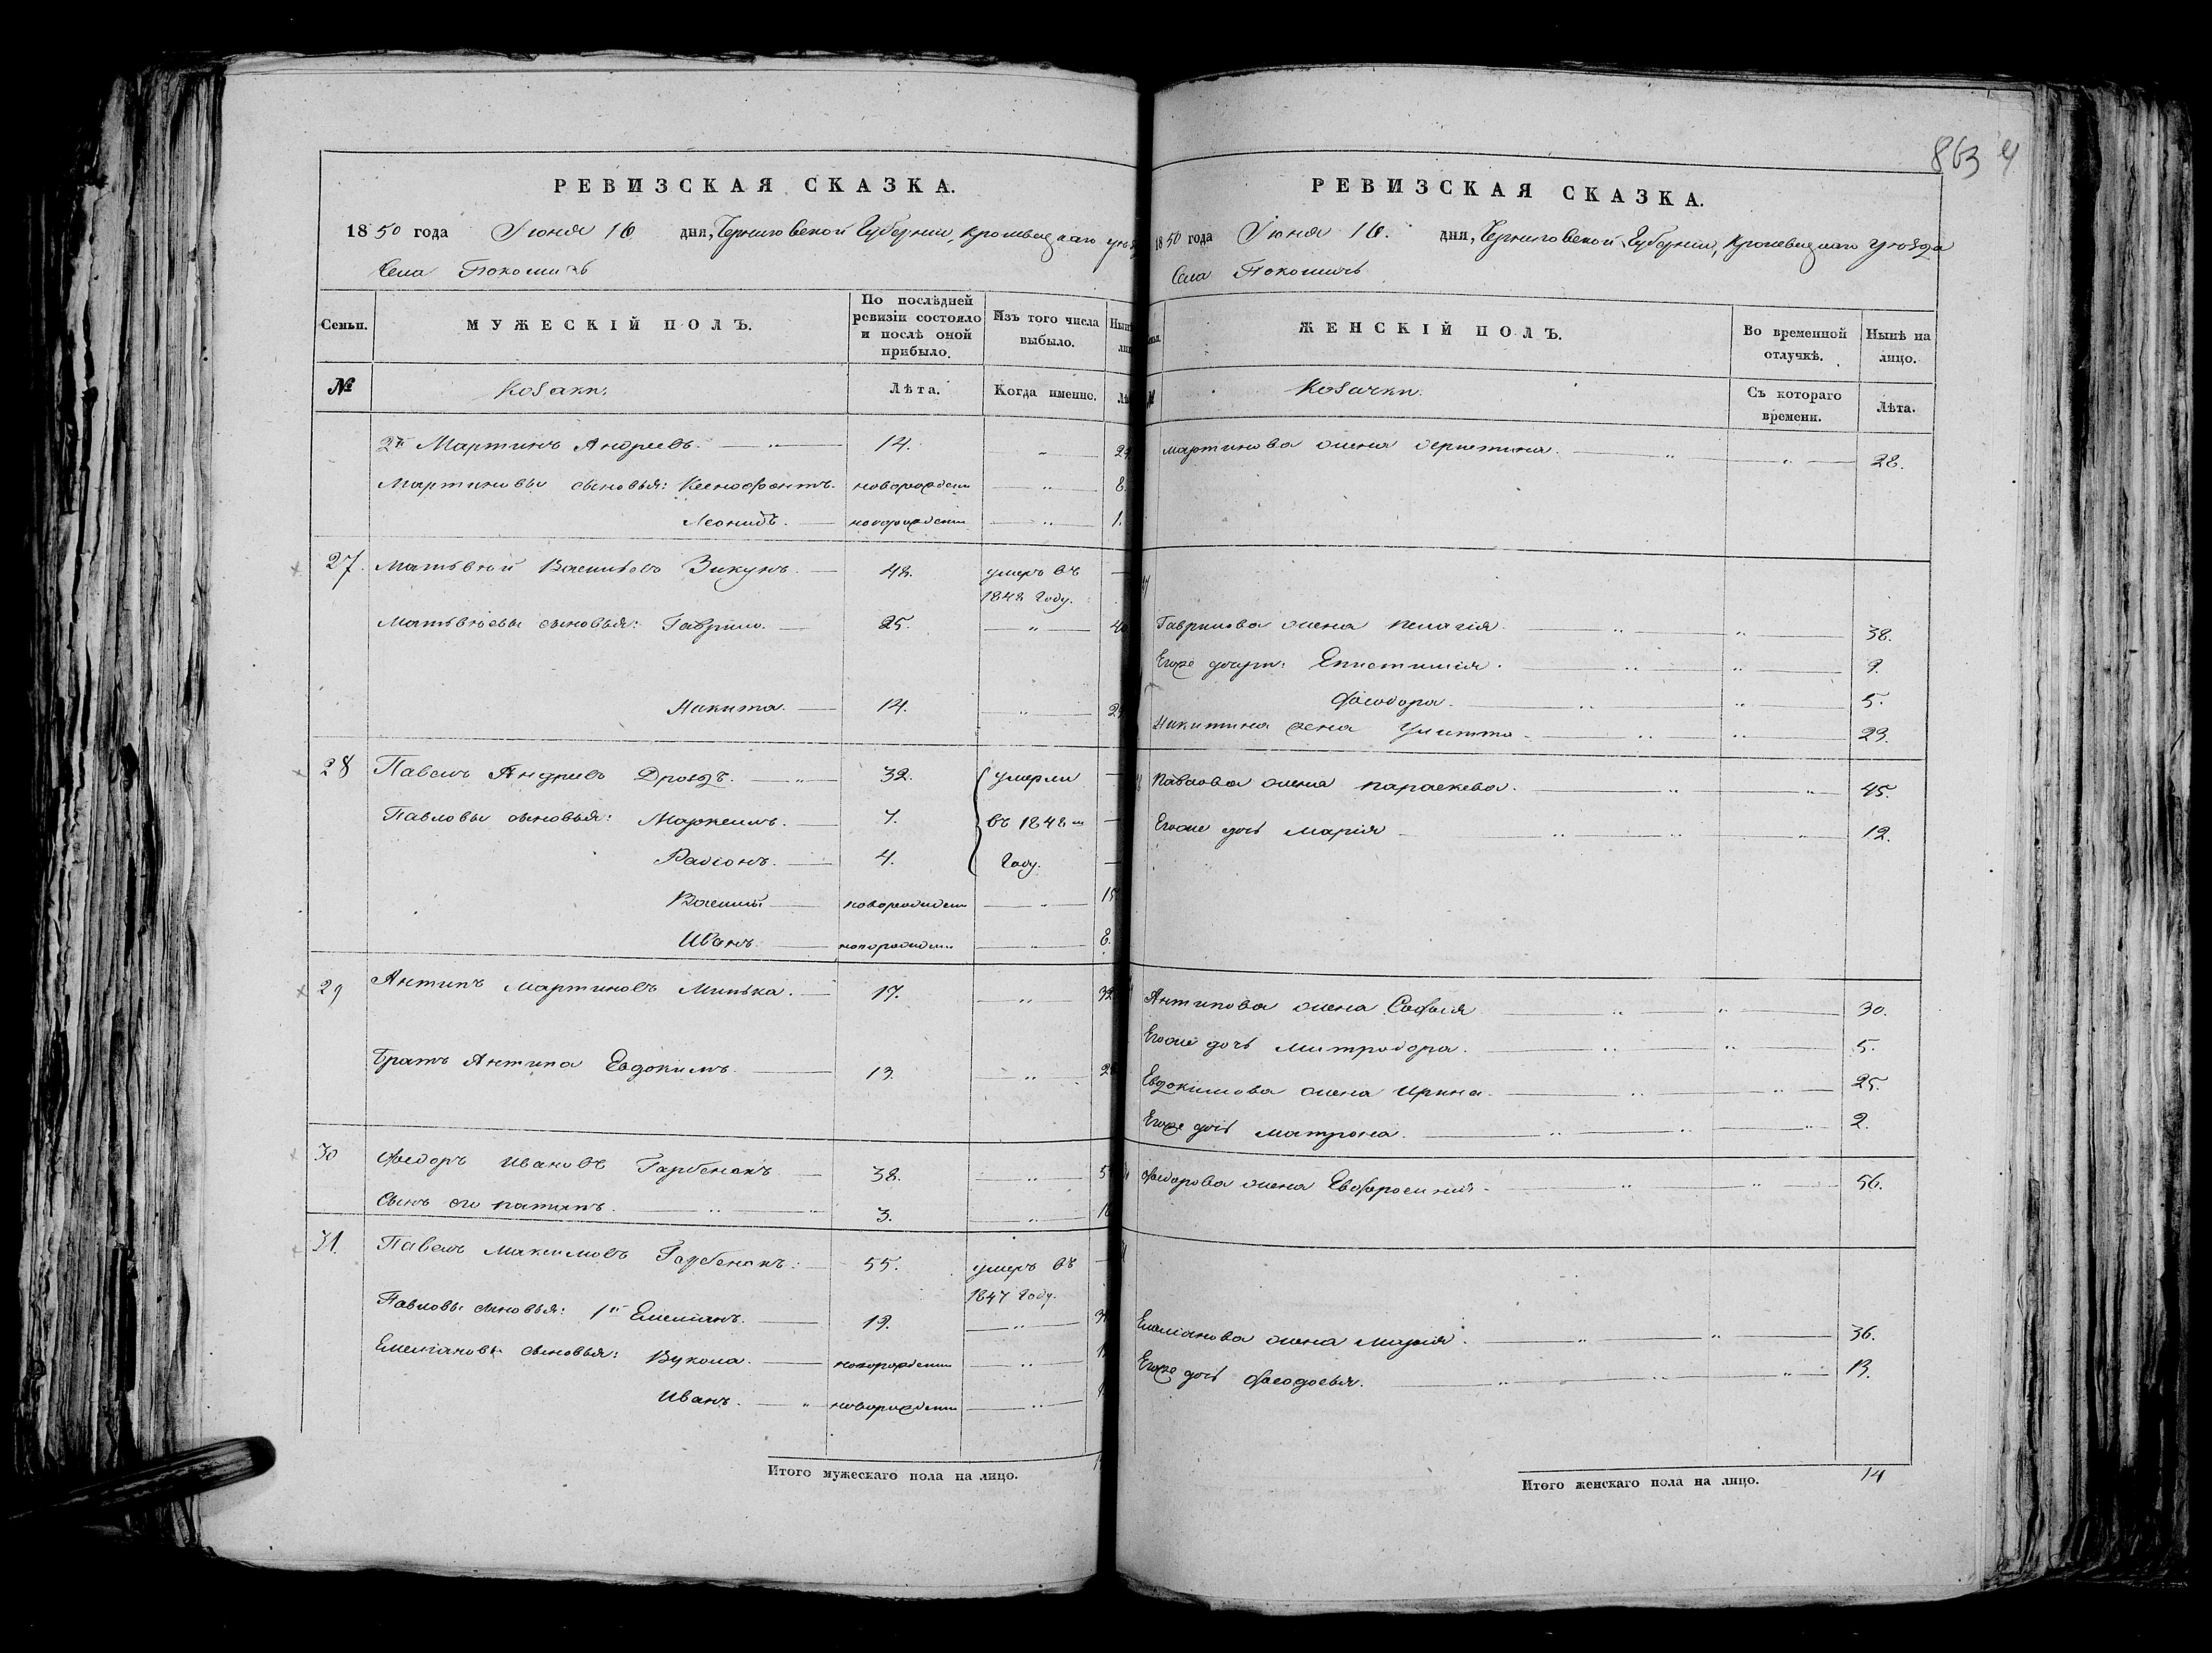 РЕВИЗСКАЯ СКАЗКА.
1850 года Іюня 16 дня, Черниговской Губерніи, Кролевецкаго уѣз
Села Покошичь
Семьи.
МУЖЕСКІЙ ПОЛЪ.
По послѣдней ревизіи состояло и послѣ оной прибыло.
Изъ того числа выбыло.
№
Козаки.
Лѣта.
Когда именно.
2й Мартинъ Андреевъ. — 14. — 29
Мартиновы сыновья: Ксенофонтъ. новорожденъ — 8.
Леонидъ. — новорожденъ — 1.
27. Матьвѣй Васильевъ Зикунъ. — 48. умеръ въ —
1848 году.
Матьвѣевы сыновья: Гаврило. — 25. — 40
Никита. — 14. — 29
28 Павелъ Андреевъ Дроздъ. — 32. умерли —
Павловы сыновья: Маркелъ. — 7. въ 1848м —
Родіонъ. — 4. году. —
Василій — новорожденъ — 15
Иванъ. — новорожденъ — 8.
29 Антипъ Мартиновъ Минька. — 17. — 32
Братъ Антипа Евдокимъ. — 13. — 28
30 Ѳедоръ Ивановъ Горбенокъ — 38. — 5
Сынъ его Потапъ. — 3. — 18
31. Павелъ Максимовъ Горбенокъ: — 55. умеръ въ —
1847 году.
Павловы сыновья: 1й Емельянъ. — 19. — 3
Емельяновы сыновья: Вукола. — новорожденъ — 1
Иванъ. — новорожденъ —
Итого мужескаго пола на лицо. 1
863 4
РЕВИЗСКАЯ СКАЗКА.
1850 года Іюня 16. дня, Черниговской Губерніи, Кролевецкаго уѣзда
Села Покошичь
ЖЕНСКІЙ ПОЛЪ.
Во временной отлучкѣ.
Нынѣ на лицо.
Козачки.
Съ котораго времени.
Лѣта.
Мартинова жена Христина. — 28.
Гаврилова жена Пелагія. — 38.
Егоже дочери: Епистимія. — 9.
Ѳеодора. — 5.
Никитина жена Улитта — 23.
Павлова жена Параскева. — 45.
Егоже дочь Марія — 12.
Антипова жена Софія — 30.
Егоже дочь Митродора. — 5.
Евдокимова жена Ирина. — 25.
Егоже дочь Матрона. — 2.
Ѳедорова жена Евфросинія — 56.
Емельянова жена Марія. — 36.
Егоже дочь Ѳеодосья. — 13.
Итого женскаго пола на лицо. 14